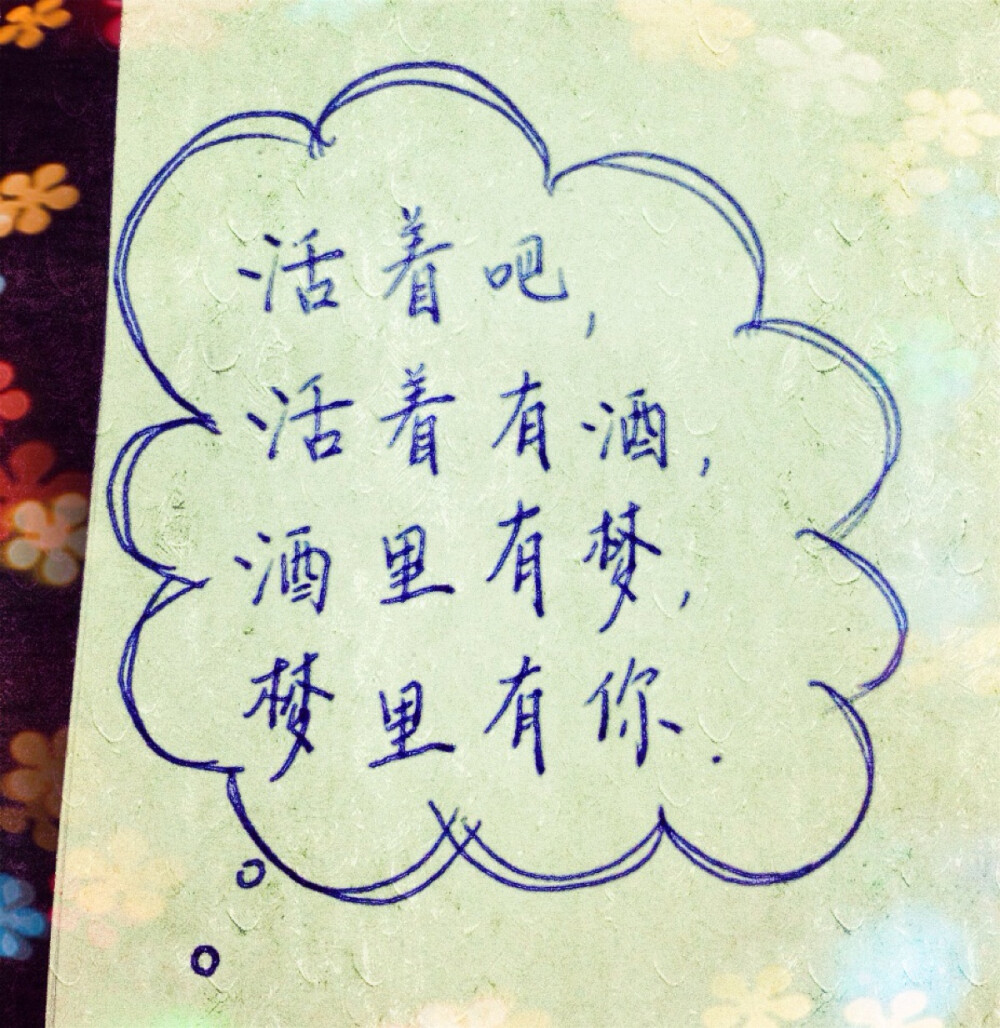 活着吧,
活着有酒,
酒里有梦,
梦里有你.